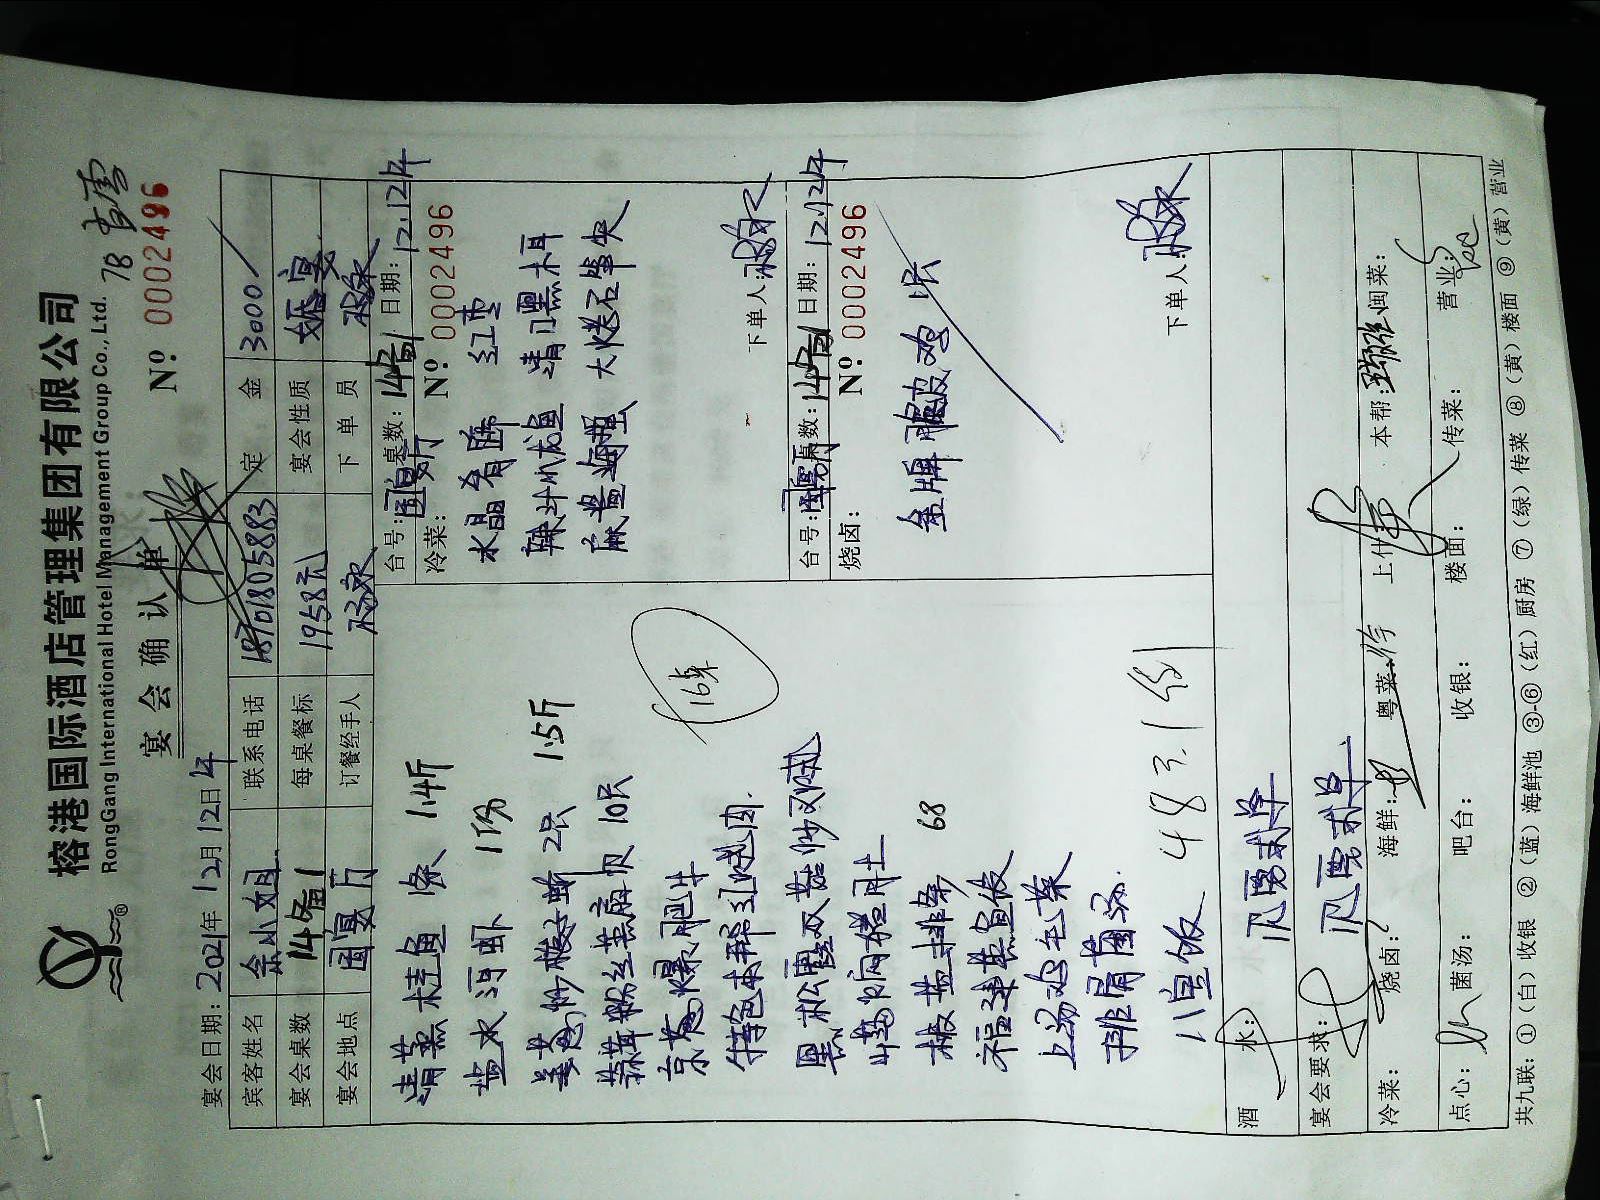 榕港国际酒店管理集团有限公司
RongGang International Hotel Management Group Co., Ltd.
宴会确认单
78
Nº 00002486
宴会日期：2021年12月12日 午
宾客姓名 余小姐 联系电话 18701805883 定金 3000
宴会桌数 14备1 每桌餐标 1958元 宴会性质 婚宴
宴会地点 国宴厅 订餐经手人 下单员
台号：国宴厅 桌数：14备1 日期：12.12午
冷菜： Nº 0002496
水晶肴蹄 红枣
辣汁 龙鱼 清口黑木耳
麻酱海蜇 大烤
下单人：
台号：国宴厅 桌数：14备1 日期：12.12午
烧卤： Nº 0002496
金牌脆皮鸡 1只
下单人：
清蒸桂鱼 1条 1.4斤
盐水河虾 1份
姜葱炒梭子蟹 2只 1.5斤
蒜茸粉丝蒸扇贝 10只
京葱爆肥牛
特色本帮红烧肉
黑松露双菇炒
椒盐排条 68
福建蒸
上汤鸡毛菜
八宝饭
16桌
483.1
酒水：
宴会要求：
冷菜： 烧卤： 海鲜： 粤菜： 上什： 本帮： 闽菜：
点心： 菌汤： 吧台： 收银： 楼面： 传菜： 营业：
共九联：①（白）收银 ②（蓝）海鲜池 ③-⑥（红）厨房 ⑦（绿）传菜 ⑧（黄）楼面 ⑨（黄）营业